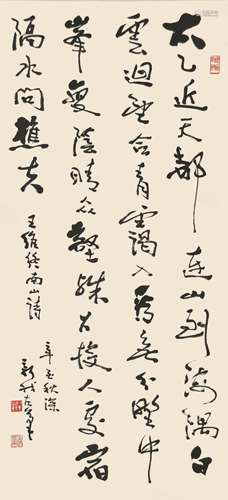 太乙近天都連山到海隅白
雲迴望合青靄入看無分野中
峯變陰晴眾壑殊欲投人處宿
隔水問樵夫
王維終南山詩
秋深